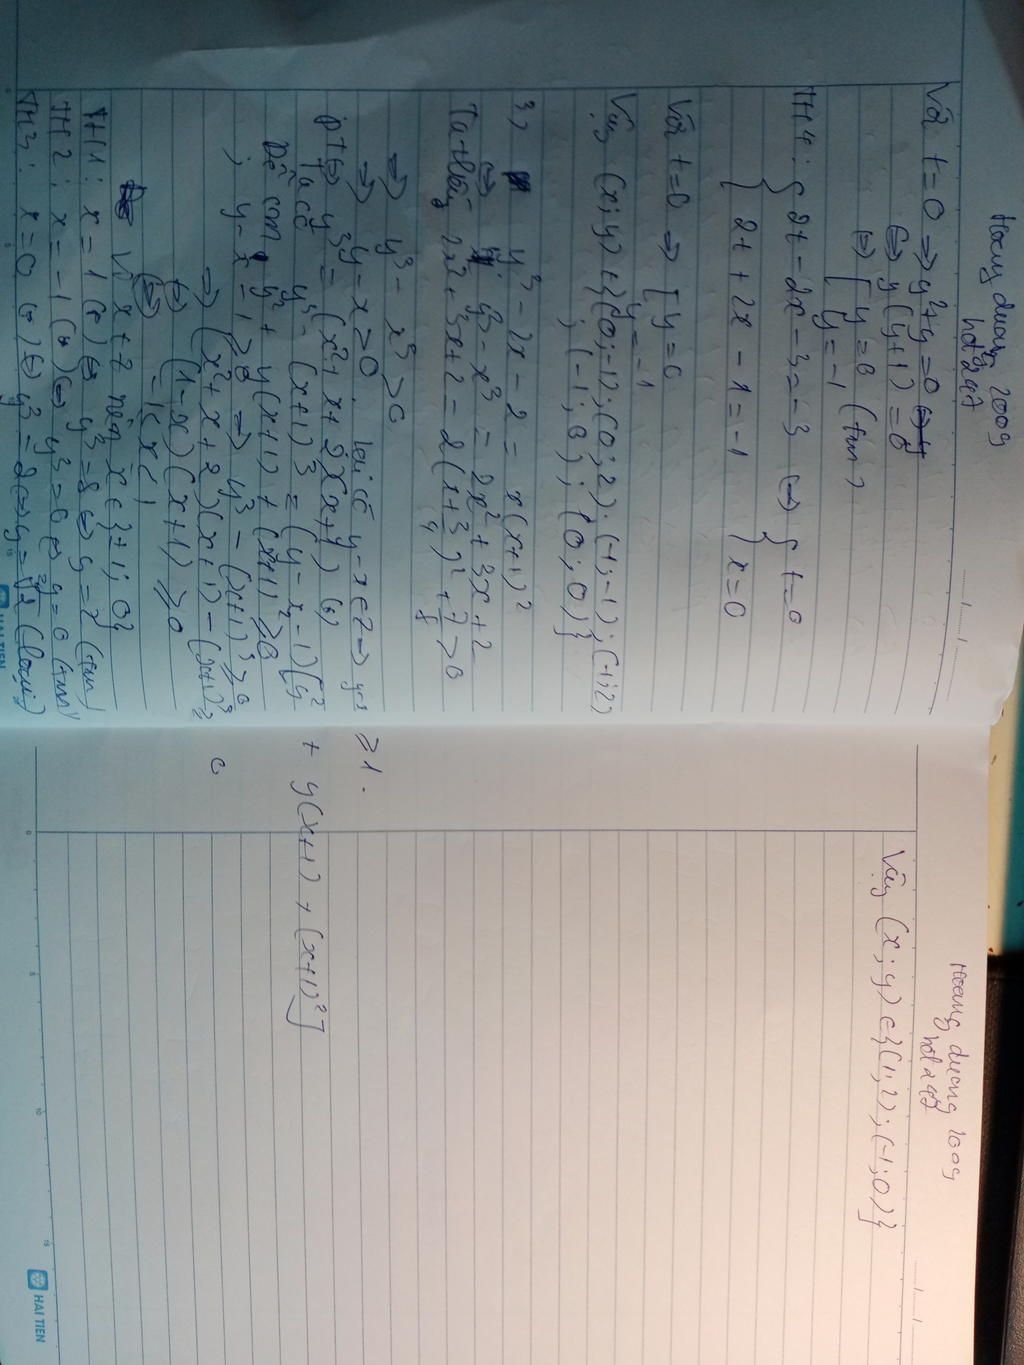 Hoang duong 2009
hdt247
Với t=0 ⇒ y²+y=0
⇔ y(y+1)=0
⇔ [ y=0 (tm)
y=-1
TH4: { 2t-2x-3=-3 ⇔ { t=0
2t+2x-1=-1 { x=0
Với t=0 ⇒ [ y=0
y=-1
Vậy (x;y)∈{(0;-1);(0;2);(-1;-1);(-1;2)
;(-1;0);(0;0)}
3, y³-2x-2=x(x+1)²
⇔ y³-x³=2x²+3x+2
Ta thấy 2x²+3x+2=2(x+3/4)²+7/8>0
⇒ y³-x³>0
⇒ y-x>0. Lại có y-x∈Z ⇒ y-x ≥1.
PT ⇔ y³=(x²+x+2)(x+1) (*)
Ta có y³-(x+1)³=(y-x-1)[y²+y(x+1)+(x+1)²]
Dễ cm y²+y(x+1)+(x+1)²≥0
; y-x-1≥0 ⇒ y³-(x+1)³≥0
⇒ (x²+x+2)(x+1)-(x+1)³≥0
⇔ (1-x)(x+1)≥0
⇔ -1≤x≤1
Vì x∈Z nên x∈{±1;0}
TH1: x=1 (*) ⇔ y³=8 ⇔ y=2 (tm)
TH2: x=-1 (*) ⇔ y³=0 ⇔ y=0 (tm)
TH3: x=0 (*) ⇔ y³=2 ⇔ y=∛2 (loại)
HAI TIEN
Hoang duong 2009
hdt247
Vậy (x;y)∈{(1;2);(-1;0)}
HAI TIEN